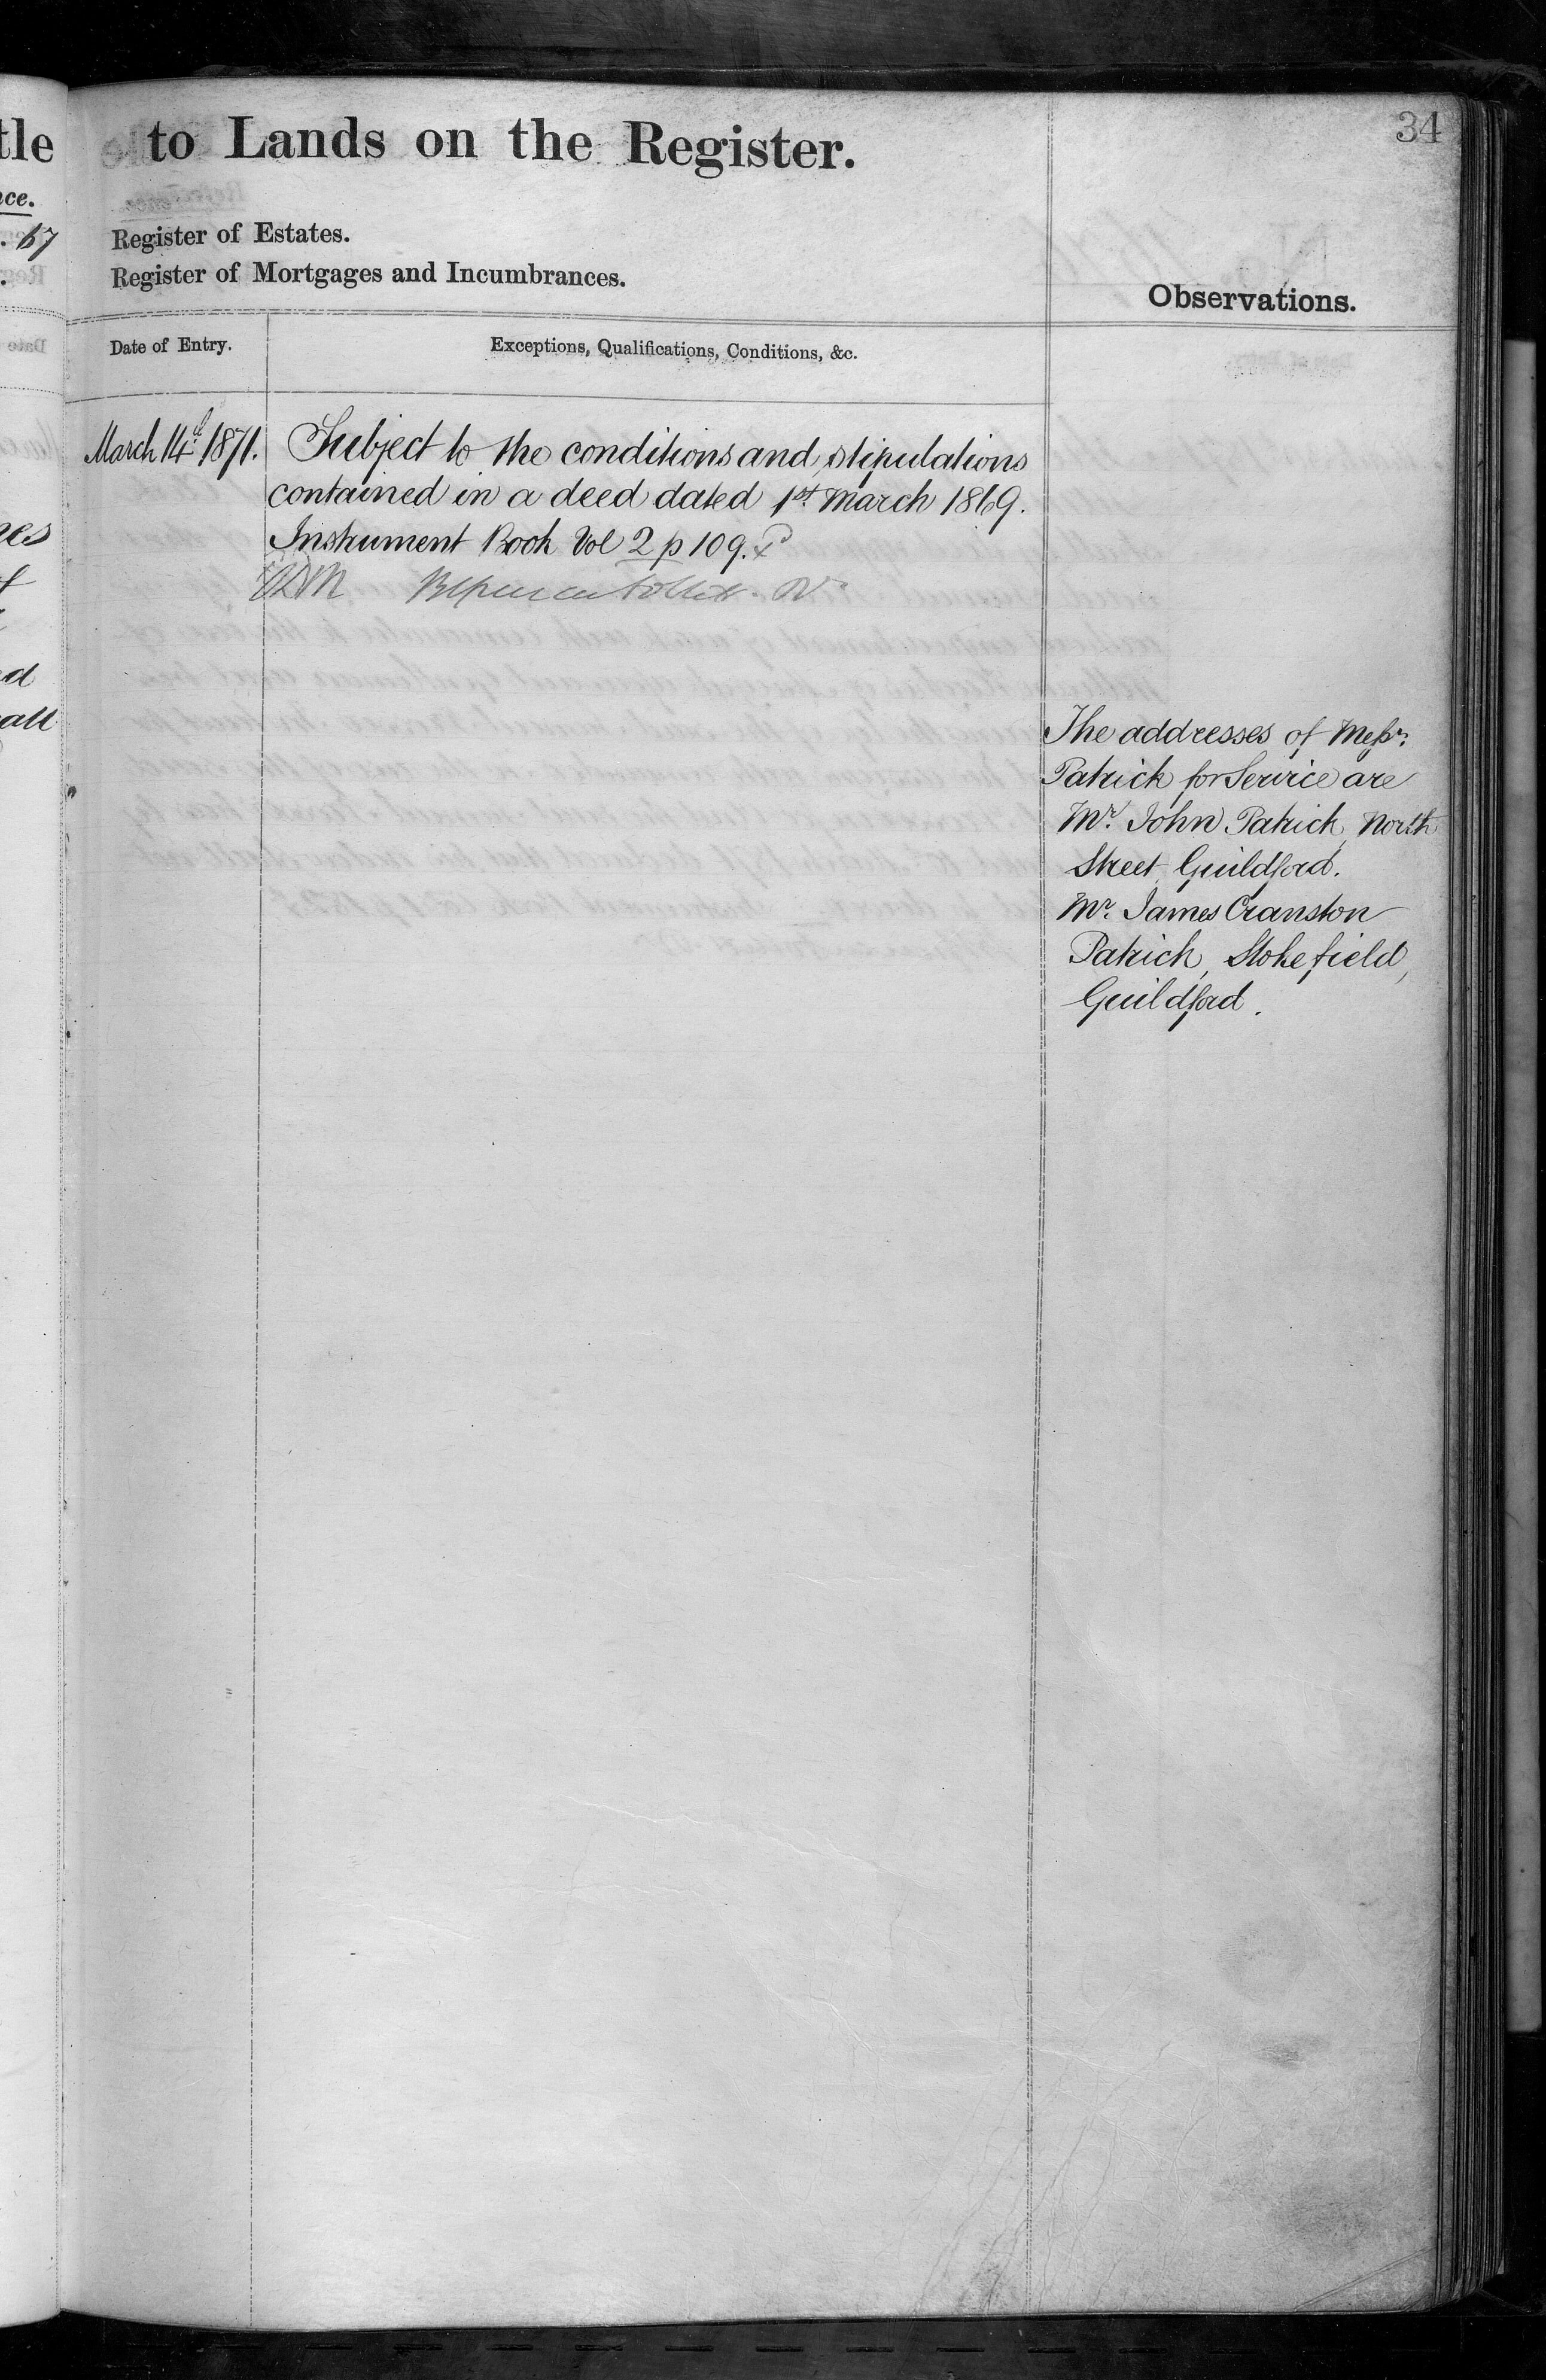 34
tle
to Lands on the Register.
nce.
. 67
Register of Estates.
Register of Mortgages and Incumbrances.
Observations.
Date of Entry.
Exceptions, Qualifications, Conditions, &c.
March 14th 1871.
Subject to the conditions and stipulations
contained in a deed dated 1st March 1869.
Instrument Book Vol 2 p 109.
ed
all
The addresses of Messrs.
Patrick for Service are
Mr. John Patrick, North
Street, Guildford.
Mr. James Cranston
Patrick, Stokefield,
Guildford.